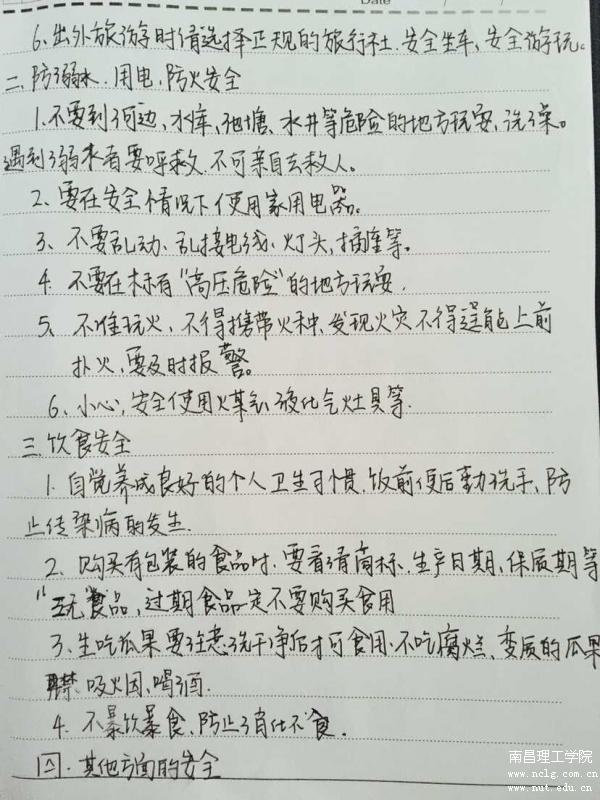 Date
6. 出外旅游时请选择正规的旅行社、安全坐车、安全游玩。
二、防溺水、用电、防火安全
1. 不要到河边、水库、池塘、水井等危险的地方玩耍、洗澡。
遇到溺水者要呼救、不可亲自去救人。
2、要在安全情况下使用家用电器。
3、不要乱动、乱接电线、灯头,插座等。
4. 不要在标有“高压危险”的地方玩耍.
5、不准玩火、不得携带火种、发现火灾不得逞能上前
扑火,要及时报警。
6、小心,安全使用煤气、液化气灶具等.
三、饮食安全
1. 自觉养成良好的个人卫生习惯,饭前便后勤洗手、防
止传染病的发生.
2、购买有包装的食品时.要看清商标、生产日期,保质期等
“三无”食品,过期食品一定不要购买食用
3、生吃瓜果要注意洗干净后才可食用.不吃腐烂、变质的瓜果
禁吸烟,喝酒.
4. 不暴饮暴食、防止消化不食.
四.其他方面的安全
南昌理工学院
www.nclg.com.cn
www.nut.edu.cn